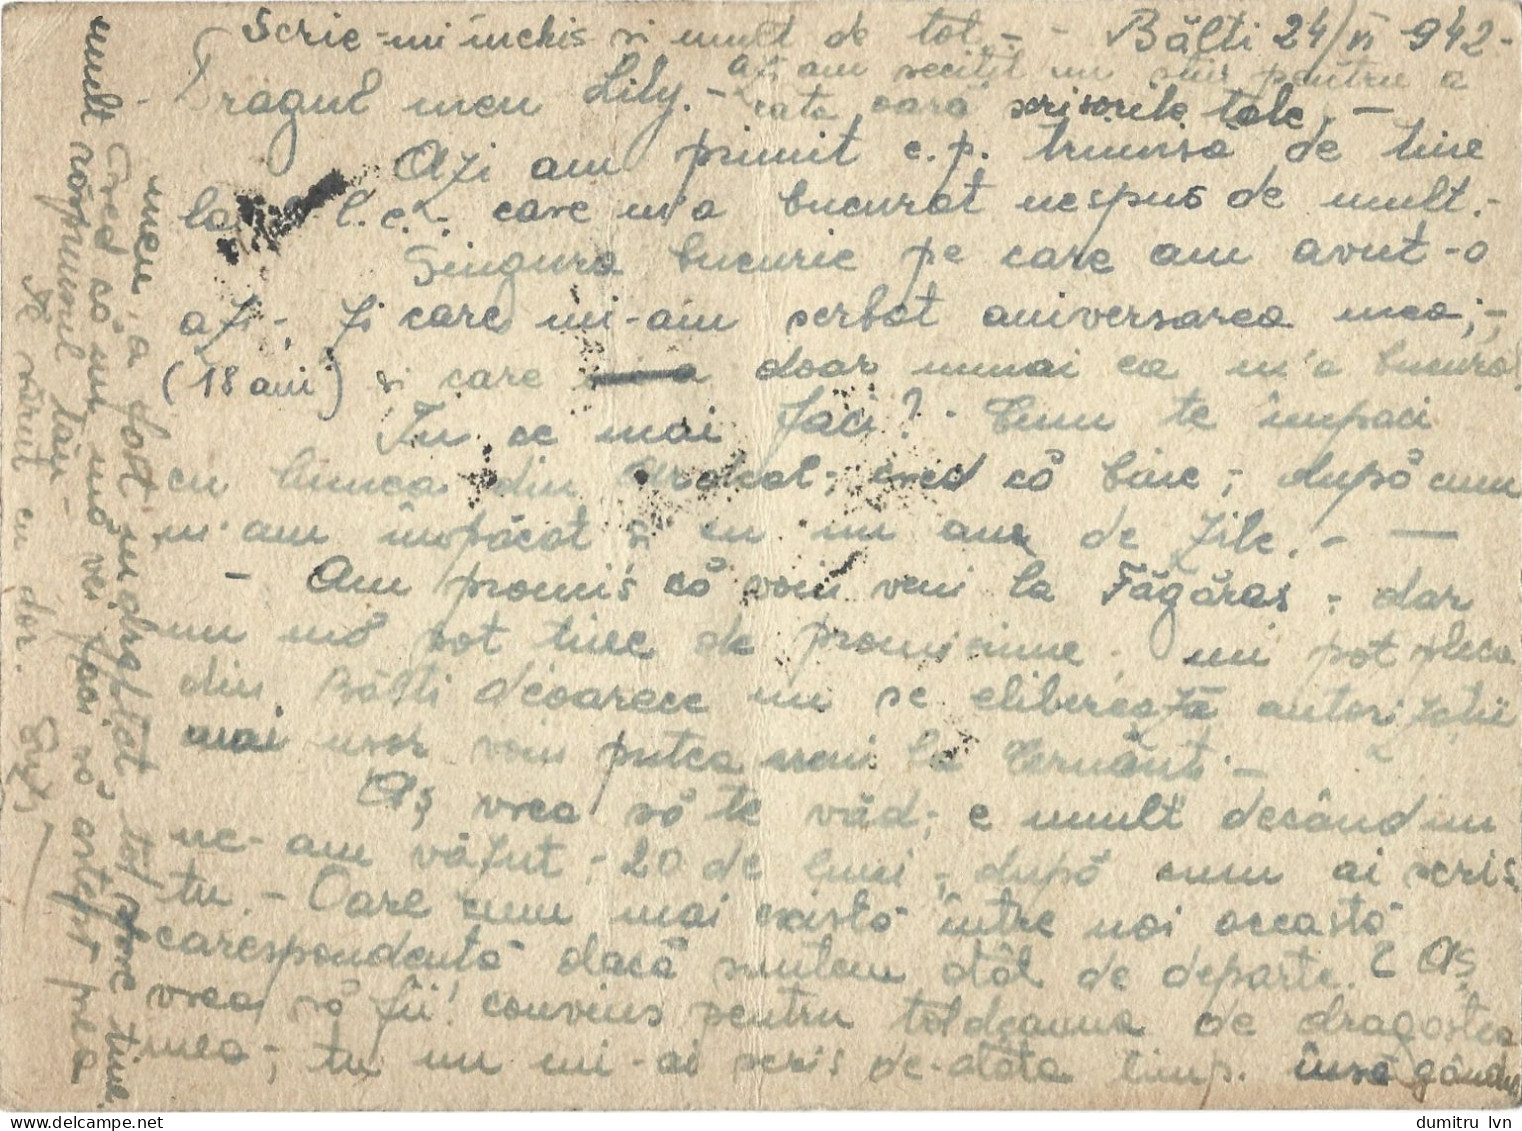 Scrie-mi închis si mult de tot.- - Bălti 24/VI 942-
Azi am recitit un stiu pentru a
Dragul meu Lily.-
cata oară scrisorile tale. -
Azi am primit c.p. trimisă de tine
la l.c. care m'a bucurat nespus de mult.-
Singura bucurie pe care am avut-o
azi; zi care mi-am serbat aniversarea mea;-
(18 ani) si care doar numai ea m'a bucurat
Tu ce mai faci? - Cum te împaci
cu lumea din Ardeal; cred că bine; după cum
m'am împăcat și eu un an de zile. - —
- Am promis că voiu veni la Făgăras; dar
nu mă pot tine de promisiune; nu pot pleca
din Bălti deoarece nu se eliberează autorizatii
mai usor voiu putea veni la Cernăuti -
Aș vrea să te văd; e mult decând nu
ne-am văzut; 20 de luni; după cum ai scris
tu. - Oare cum mai există între noi această
carespondentă dacă suntem atât de departe? Aș
vrea să fii convins pentru totdeauna de dragostea
mea; tu nu mi-ai scris de-atâta timp. însă gândul
meu, a fost îndreptat tot spre tine.
Cred că nu mă vei face să astept prea
mult răspunsul tău -
Te sărut cu dor.
dumitru lvn